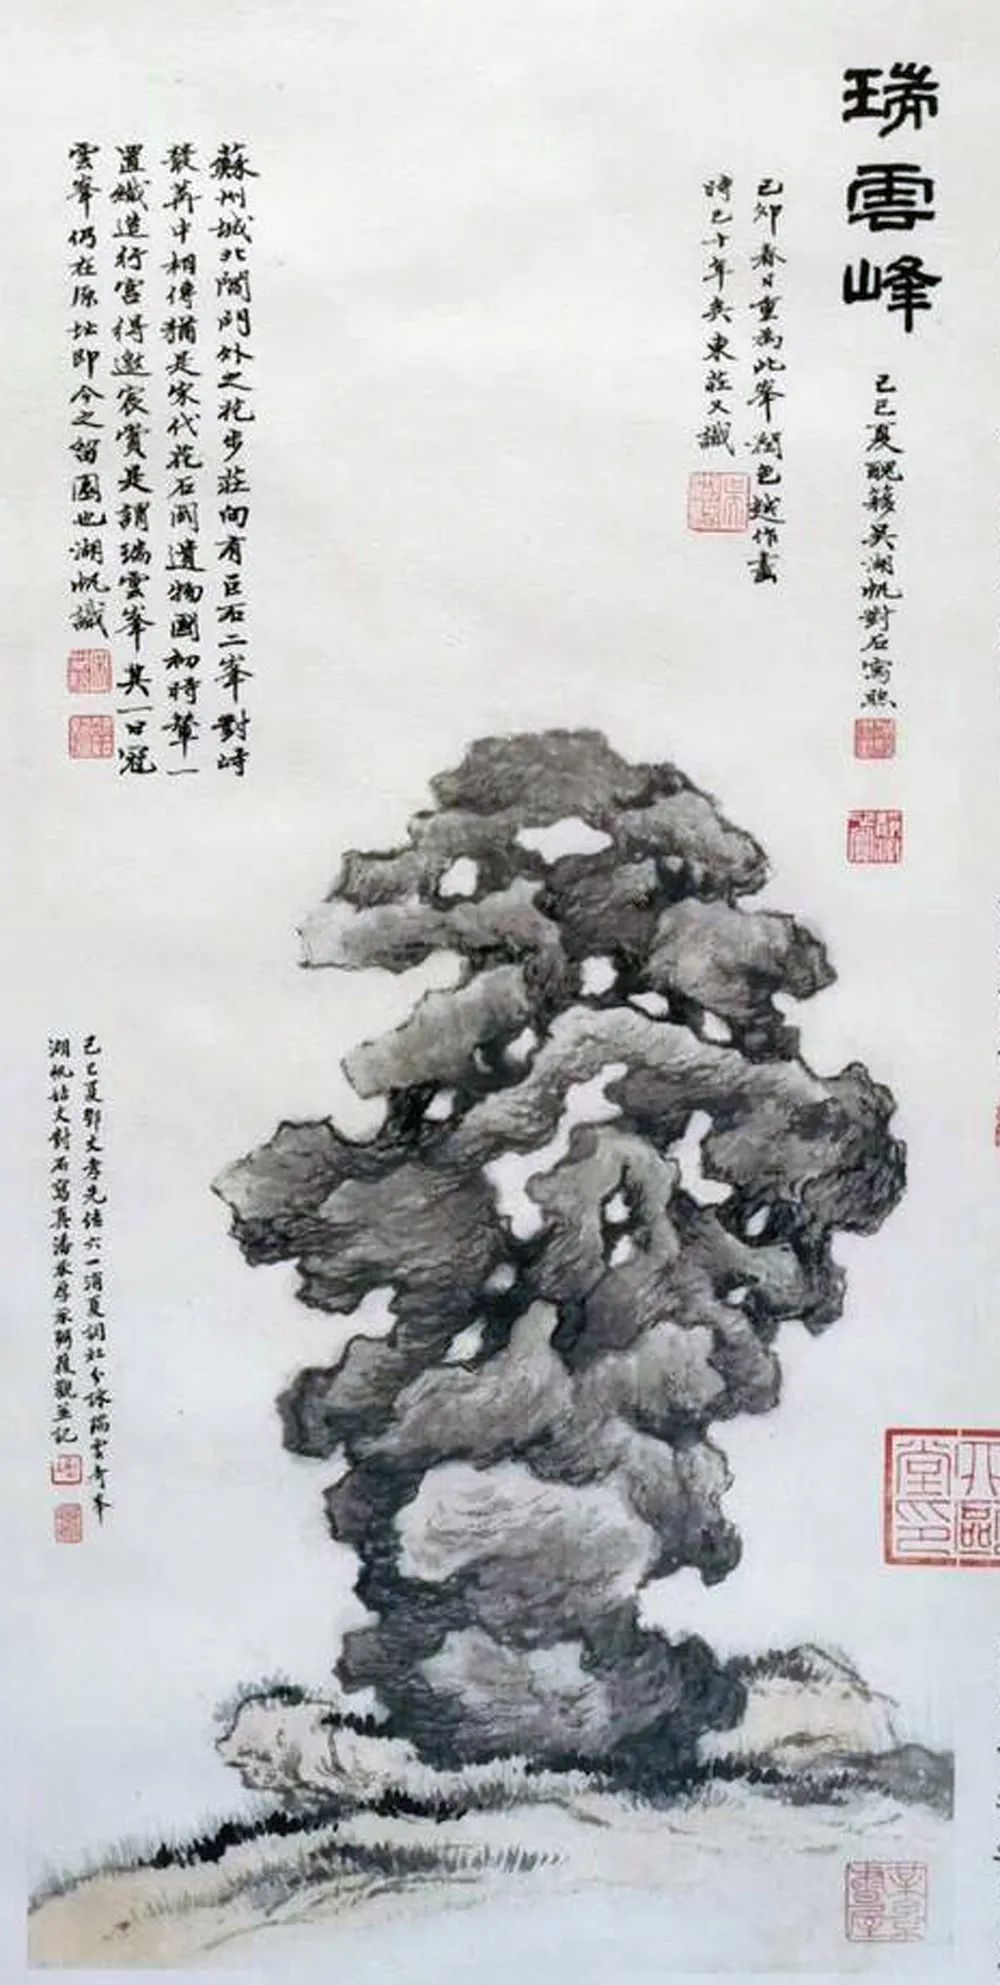 瑞雲峰
己巳夏醜簃吳湖帆對石寫照
己卯春日重為此峯潤色越作畫
時已十年矣東莊又識
蘇州城北閶門外之花步莊向有巨石二峯對峙
叢莽中相傳猶是宋代花石岡遺物國初時輦一
置織造行宮得邀宸賞是謂瑞雲峯其一曰冠
雲峯仍在原址即今之留園也湖帆識
己巳夏鄧丈孝先結六一消夏詞社分詠瑞雲奇峯
湖帆姑丈對石寫真潘承厚承弼獲觀並記